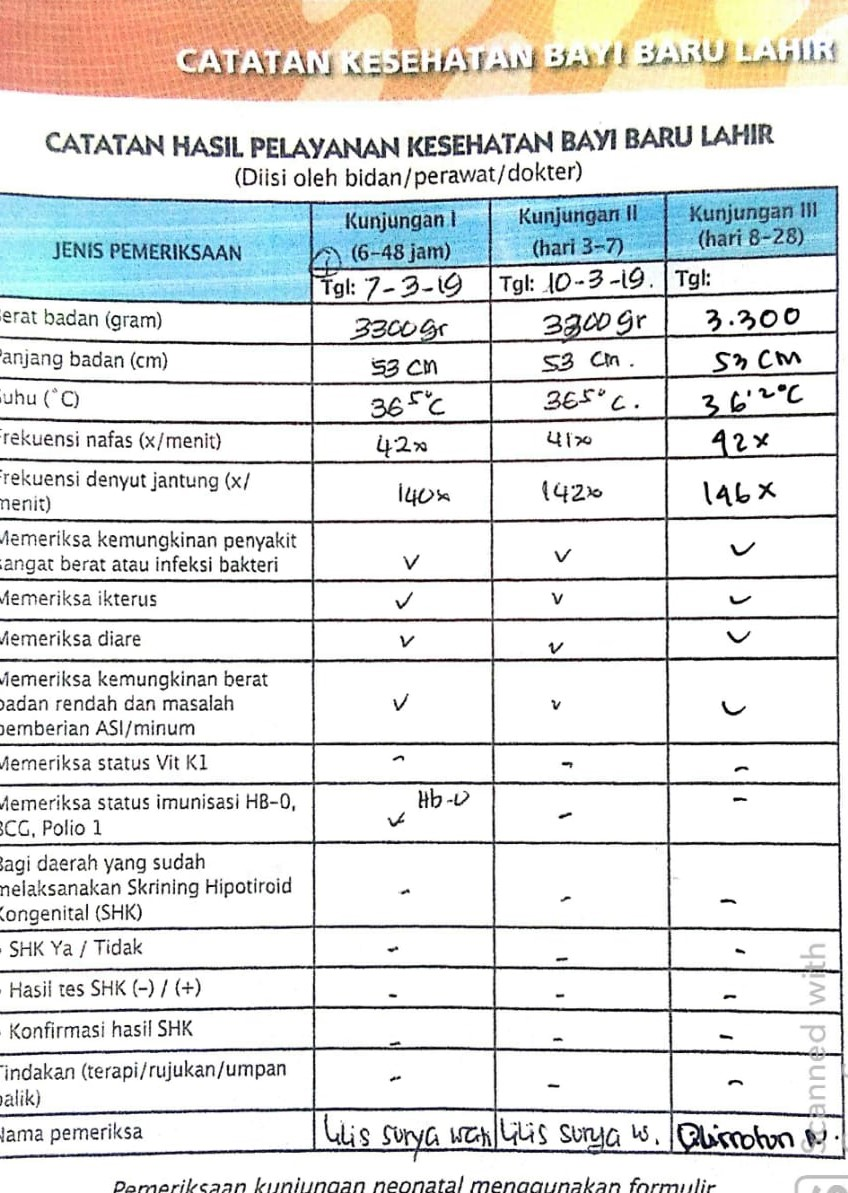 CATATAN KESEHATAN BAYI BARU LAHIR
CATATAN HASIL PELAYANAN KESEHATAN BAYI BARU LAHIR
(Diisi oleh bidan/perawat/dokter)
JENIS PEMERIKSAAN
Kunjungan I
(6-48 jam)
Kunjungan II
(hari 3-7)
Kunjungan III
(hari 8-28)
Tgl: 7-3-19 Tgl: 10-3-19. Tgl:
erat badan (gram) 3300 gr 3300 gr 3.300
Panjang badan (cm) 53 cm 53 cm. 53 cm
uhu (°C) 36 5°C 365°C. 36'2°C
Frekuensi nafas (x/menit) 42x 41x 42x
Frekuensi denyut jantung (x/
menit) 140x 142x 146x
Memeriksa kemungkinan penyakit
sangat berat atau infeksi bakteri ✓ ✓ ✓
Memeriksa ikterus ✓ ✓ ✓
Memeriksa diare ✓ ✓ ✓
Memeriksa kemungkinan berat
badan rendah dan masalah
pemberian ASI/minum ✓ ✓ ✓
Memeriksa status Vit K1 - - -
Memeriksa status imunisasi HB-0,
BCG, Polio 1 ✓ Hb-0 - -
Bagi daerah yang sudah
melaksanakan Skrining Hipotiroid
Kongenital (SHK) - - -
SHK Ya / Tidak - - -
Hasil tes SHK (-) / (+) - - -
Konfirmasi hasil SHK - - -
Tindakan (terapi/rujukan/umpan
balik) - - -
Nama pemeriksa Lilis Surya Lilis Surya W.
Pemeriksaan kunjungan neonatal menggunakan formulir
Scanned with